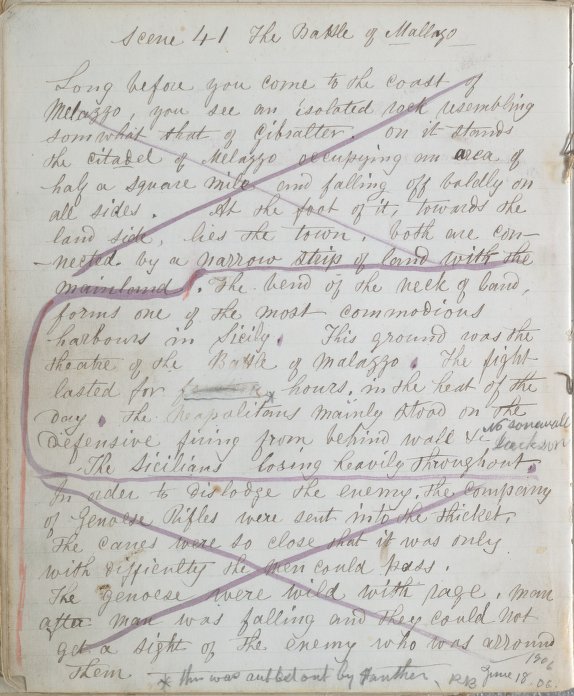 Scene 41 The Battle of Mallazo
Long before you come to the coast of
Melazzo, you see an isolated rock resembling
somwhat that of Gibralter on it stands
the citadel of Melazzo occupying an area of
half a square mile and falling off boldly on
all sides. At the foot of it, towards the
land side, lies the town. both are con-
-nected by a narrow strip of land with the
mainland. The bend of the neck of land,
forms one of the most commodious
harbours in Sicily. This ground was the
theatre of the Battle of Malazzo. The fight
lasted for hours, in the heat of the
day. The Neapolitans mainly stood on the
Defensive firing from behind wall &c
No
The Sicilians losing heavily throughout.
In order to dislodge the enemy, the company
of Genoese Rifles were sent into the thicket.
The canes were so close that it was only
with difficulty the men could pass.
The Genoese were wild with rage. man
after man was falling and they could not
get a sight of the enemy who was arround
them
* this was rubbed out by
June 18
1906